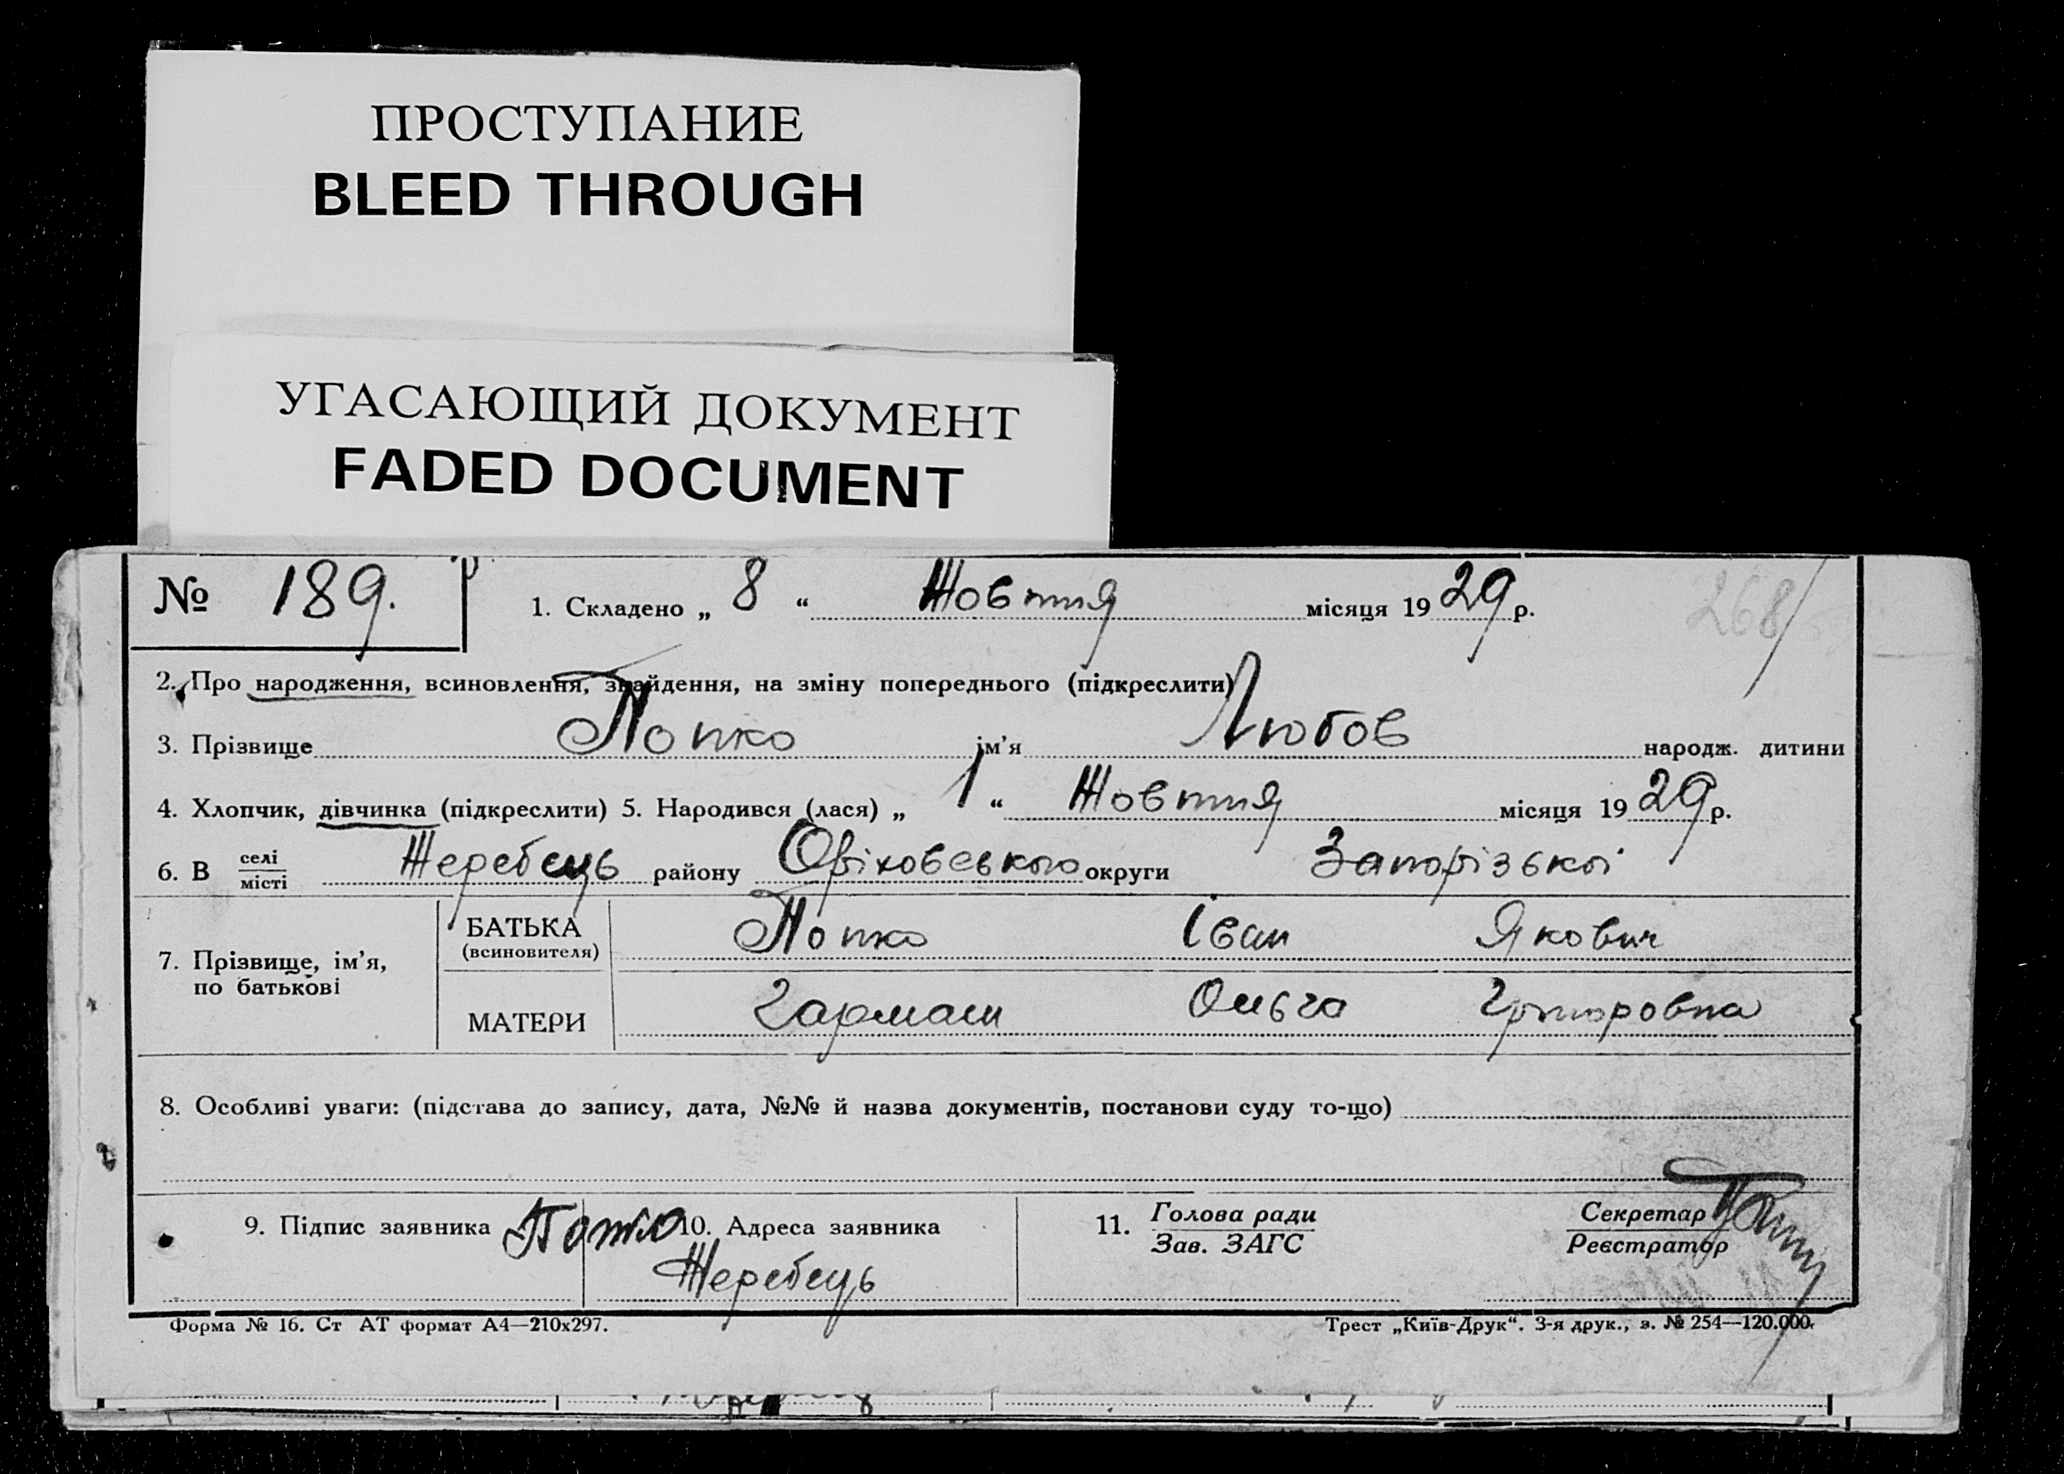 ПРОСТУПАНИЕ
BLEED THROUGH
УГАСАЮЩИЙ ДОКУМЕНТ
FADED DOCUMENT
№ 189. 1. Складено „ 8 “ Жовтня місяця 1929 р. 268
2. Про народження, всиновлення, знайдення, на зміну попереднього (підкреслити)
3. Прізвище Попко ім’я Любов народж. дитини
4. Хлопчик, дівчинка (підкреслити) 5. Народився (лася) „ 1 “ Жовтня місяця 1929 р.
6. В селі/місті Жеребець району Оріховського округи Запорізької
7. Прізвище, ім’я, по батькові
БАТЬКА (всиновителя) Попко Іван Якович
МАТЕРИ Гармаш Ольга Григоровна
8. Особливі уваги: (підстава до запису, дата, №№ й назва документів, постанови суду то-що)
9. Підпис заявника Попко 10. Адреса заявника
Жеребець
11. Голова ради / Зав. ЗАГС Секретар / Реєстратор
Форма № 16. Ст АТ формат А4—210х297. Трест „Київ-Друк“. 3-я друк., з. № 254—120.000.